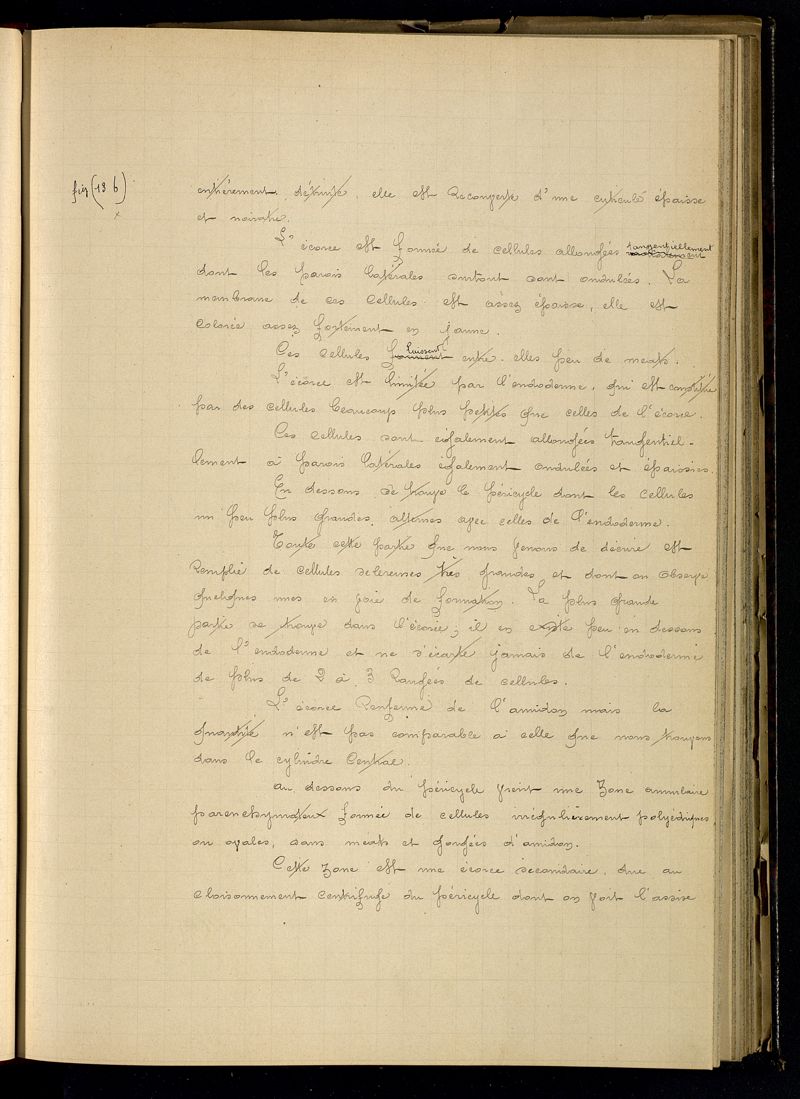 fig (13 b)
x
entièrement détruite, elle est recouverte d'une cuticule épaisse
et noirâtre.
L'écorce est formée de cellules allongées tangentiellement
dont les parois latérales surtout sont ondulées. La
membrane de ces cellules est assez épaisse, elle est
colorée assez fortement en jaune.
Ces cellules laissent entre elles peu de méats.
L'écorce est limitée par l'endoderme, qui est constitué
par des cellules beaucoup plus petites que celles de l'écorce.
Ces cellules sont également allongées tangentiel-
lement à parois latérales également ondulées et épaissies.
En dessous se trouve le péricycle dont les cellules
un peu plus grandes, alternes avec celles de l'endoderme.
Toute cette partie que nous venons de décrire est
remplie de cellules sclereuses très grandes et dont on observe
quelques unes en voie de formation. La plus grande
partie se trouve dans l'écorce; il en existe peu en dessous
de l'endoderme et ne s'écarte jamais de l'endoderme
de plus de 2 à 3 rangées de cellules.
L'écorce renferme de l'amidon mais la
quantité n'est pas comparable à celle que nous trouvons
dans le cylindre central.
au dessous du péricycle vient une zone annulaire
parenchymateux formée de cellules irrégulièrement polyédriques
ou ovales, sans méats et gorgées d'amidon.
Cette zone est une écorce secondaire, due au
cloisonnement centrifuge du péricycle dont on voit l'assise